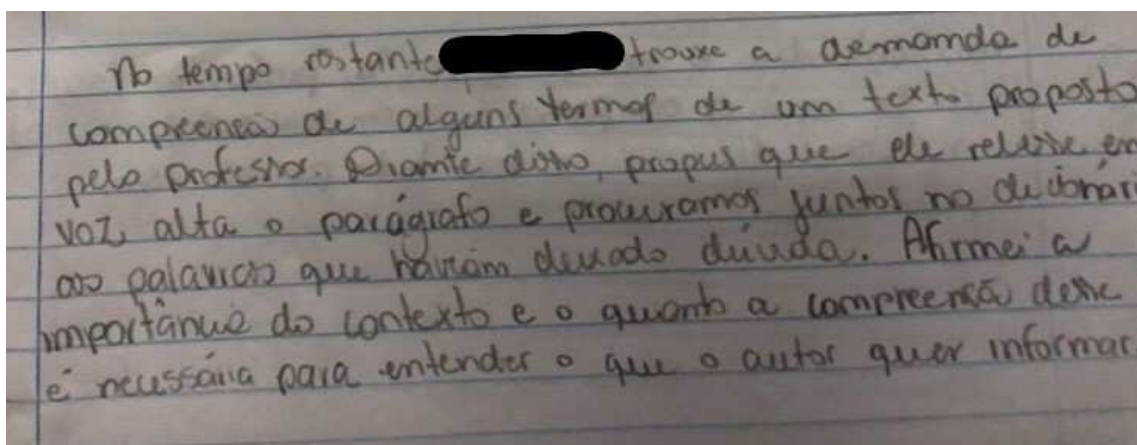 No tempo restante trouxe a demanda de
compreensão de alguns termos de um texto proposto
pelo professor. Diante disso, propus que ele relesse em
voz alta o parágrafo e procuramos juntos no dicionári
as palavras que haviam deixado dúvida. Afirmei a
importância do contexto e o quanto a compreensão desse
é necessária para entender o que o autor quer informar